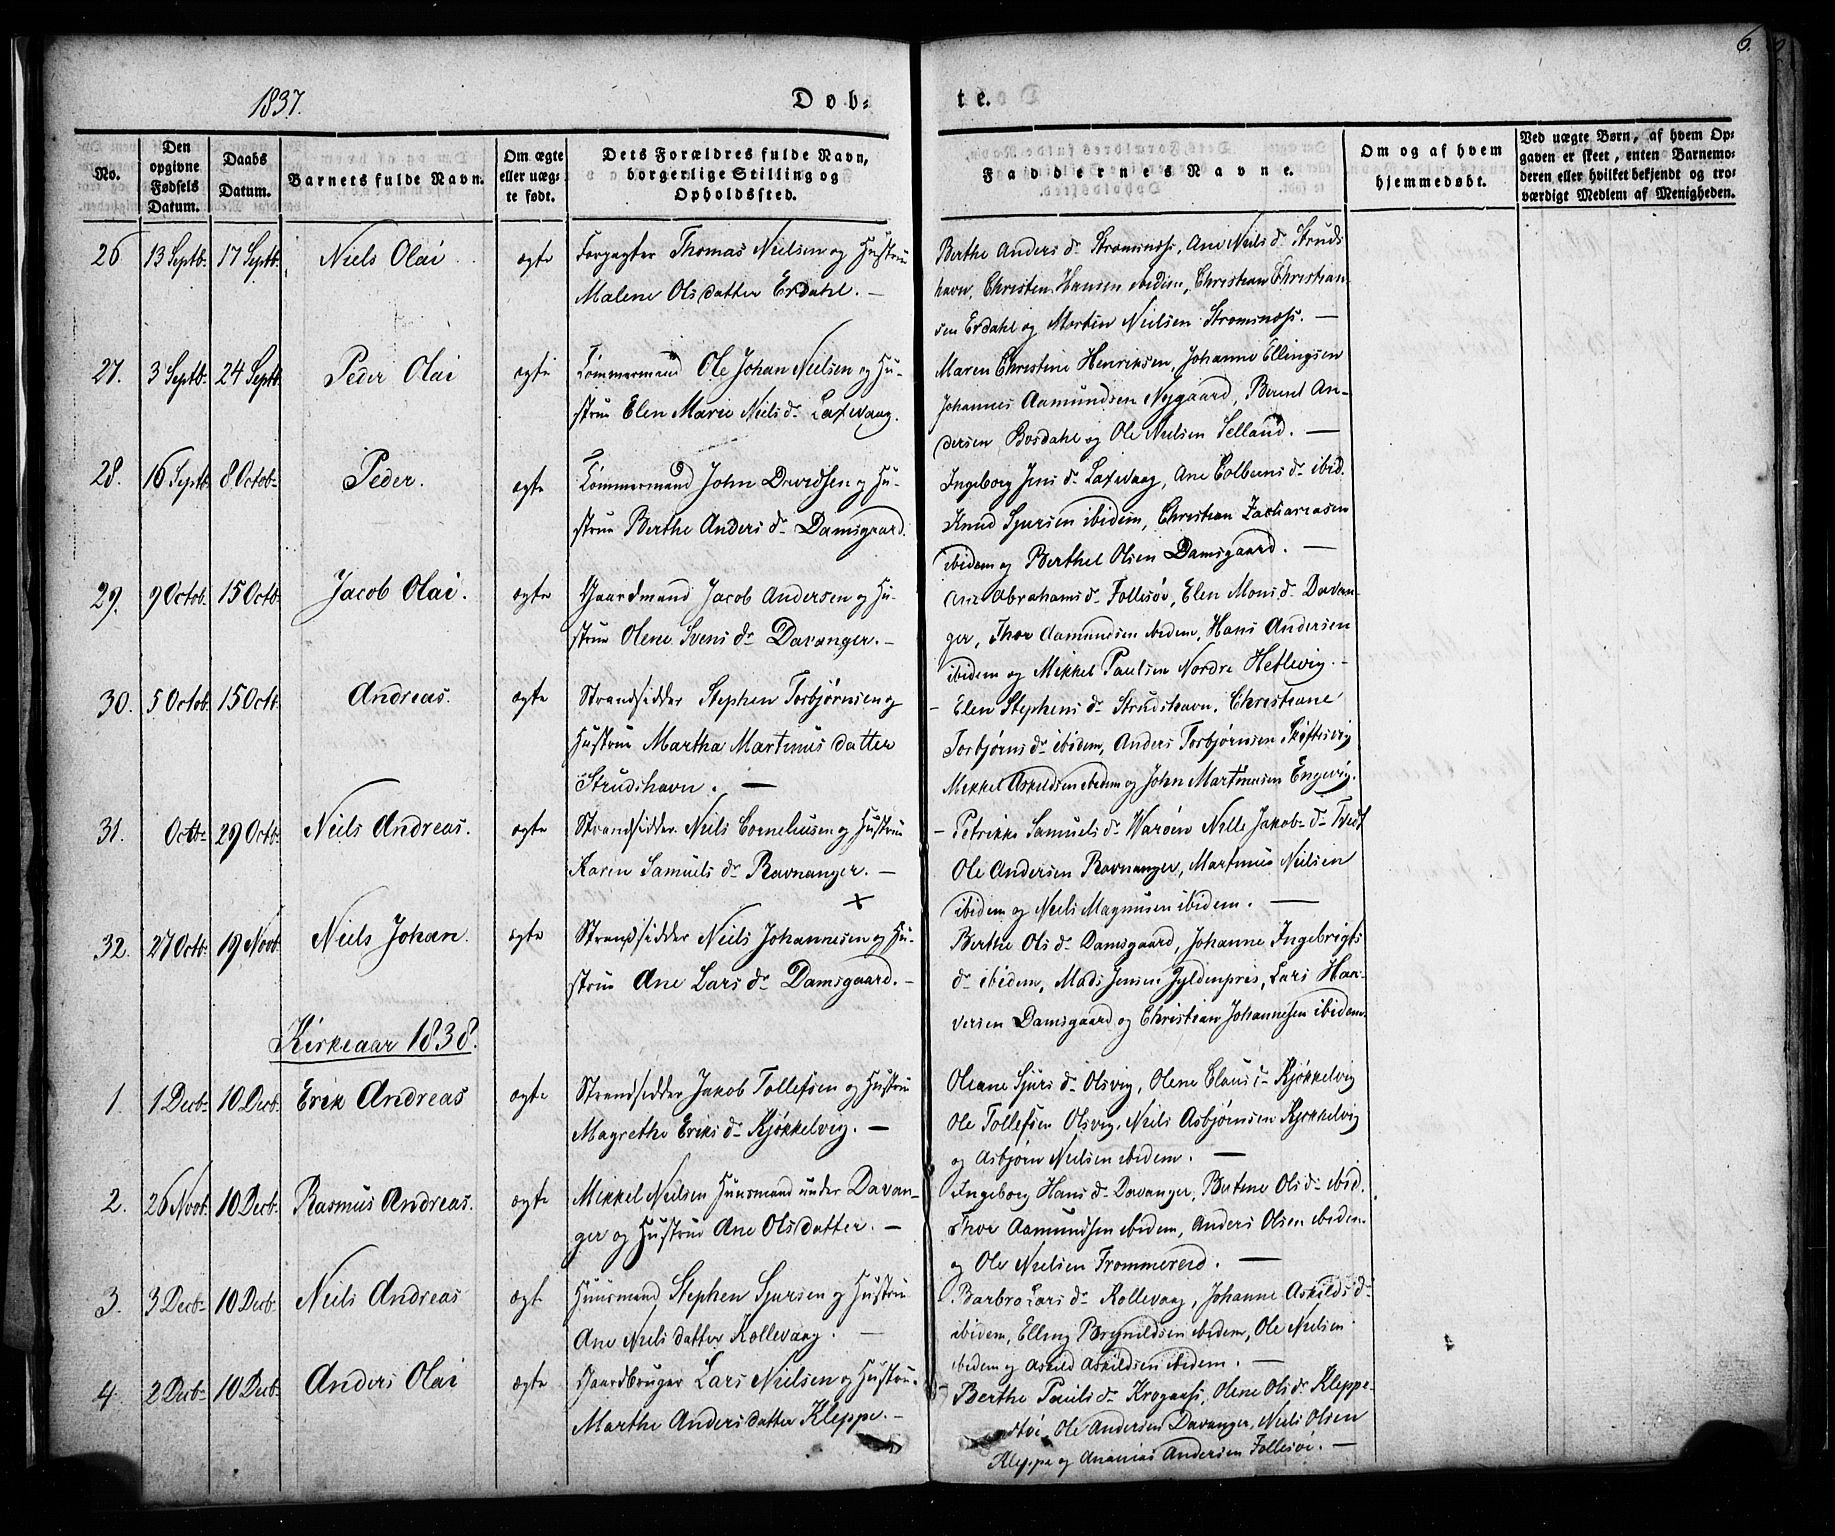 1837.
Døb-
te.
6.
No.
Den opgivne Fødsels Datum.
Daabs Datum.
Barnets fulde Navn.
Om ægte eller uægte født.
Dets Forældres fulde Navn, borgerlige Stilling og Opholdssted.
Faddernes Navne.
Om og af hvem hjemmedøbt.
Ved uægte Børn, af hvem Opgaven er skeet, enten Barnemoderen eller hvilket bekjendt og troværdigt Medlem af Menigheden.
26 13 Septb. 17 Septb. Niels Olai ægte Forpagter Thomas Nielsen og Hustrue
Malene Olsdatter Erdahl. —
Berthe Anders dr Stromsnæss, Ane Niels dr Struds
havn, Christen Hansen ibidem, Christian Christian-
sen Erdahl og Morten Nielsen Stromsnæss. —
27. 3 Septb. 24 Septb. Peder Olai ægte Tømmermand Ole Johan Nielsen og Hu-
strue Elen Marie Niels dr Laxevaag.
Maren Christine Henriksen, Johanne Ellingsen
Johannes Aamundsen Nygaard, Bernt An-
dersen Bosdahl og Ole Nielsen Selland. —
28. 16 Septb. 8 Octob. Peder. ægte Tømmermand John Davidsen og Hu-
strue Berthe Anders dr Damsgaard.
Ingeborg Jens dr Laxevaag, Ane Colbens dr ibid.
Knud Sjursen ibidem, Christian Zachariasen
ibidem og Berthel Olsen Damsgaard. —
29. 9 Octob. 15 Octb. Jacob Olai. ægte Gaardmand Jacob Andersen og Hu-
strue Olene Svens dr Davanger. —
Ane Abrahams dr Follesøe, Elen Mons dr Davan-
ger, Thor Aamundsen ibidem, Hans Andersen
ibidem og Mikkel Paulsen Nordre Hetlevig. —
30. 5 Octob. 15 Octb. Andreas. ægte Strandsidder Stephen Torbjørnsen og
Hustrue Martha Martinusdatter
Strudshavn. —
– Elen Stephens dr Strudshavn, Christiane
Torbjørns dr ibidem, Anders Torbjørnsen Skiftesvig
Mikkel Askildsen ibidem og John Martinusen Engevig.
31. Octb. 29 Octb. Niels Andreas. ægte Strandsidder Niels Corneliusen og Hustrue
Karen Samuels dr Ravnanger. —
– Petrikke Samuels dr Varøen Nille Jakobs dr Tvedt
Ole Andersen Ravnanger, Martinus Nielsen
ibidem og Niels Magnusen ibidem. —
32. 27 Octb. 19 Novb. Niels Johan. ægte Strandsidder Niels Johannesen og Hu-
strue Ane Lars dr Damsgaard. —
Berthe Ols dr Damsgaard, Johanne Ingebrigts
dr ibidem, Mads Jensen Gyldenpris, Lars Han-
versen Damsgaard og Christian Johannesen ibidem.
Kirkeaar 1838.
1. 1 Decb. 10 Decb. Erik Andreas ægte Strandsidder Jakob Tollefsen og Hustrue
Magrethe Eriks dr Kjøkkelvig. —
Oleane Sjurs dr Olsvig, Olene Claus dr Kjøkkelvig
Ole Tollefsen Olsvig, Niels Asbjørnsen Kjøkkelvig
og Asbjørn Nielsen ibidem. —
2. 26 Novb. 10 Decb. Rasmus Andreas. ægte Mikkel Nielsen Huusmand under Davan-
ger og Hustrue Ane Olsdatter. —
Ingeborg Hans dr Davanger, Bertine Ols dr ibid.
Thor Aamundsen ibidem, Anders Olsen ibidem
og Ole Nielsen Frommereid. —
3. 3 Decb. 10 Decb. Niels Andreas ægte Huusmand Stephen Sjursen og Hustrue
Ane Nielsdatter Kollevaag. —
Barbro Lars dr Kollevaag, Johanne Askilds dr
ibidem, Elling Brynildsen ibidem, Ole Nielsen
ibidem og Askild Askildsen ibidem. —
4. 2 Decb. 10 Decb. Anders Olai ægte Gaardbruger Lars Nielsen og Hustrue
Marthe Andersdatter Kleppe. —
Berthe Pauls dr Krogaass, Olene Ols dr Kleppe
Ole Andersen Davanger, Niels Olsen
Kleppe og Ananias Andersen Follesøe. —